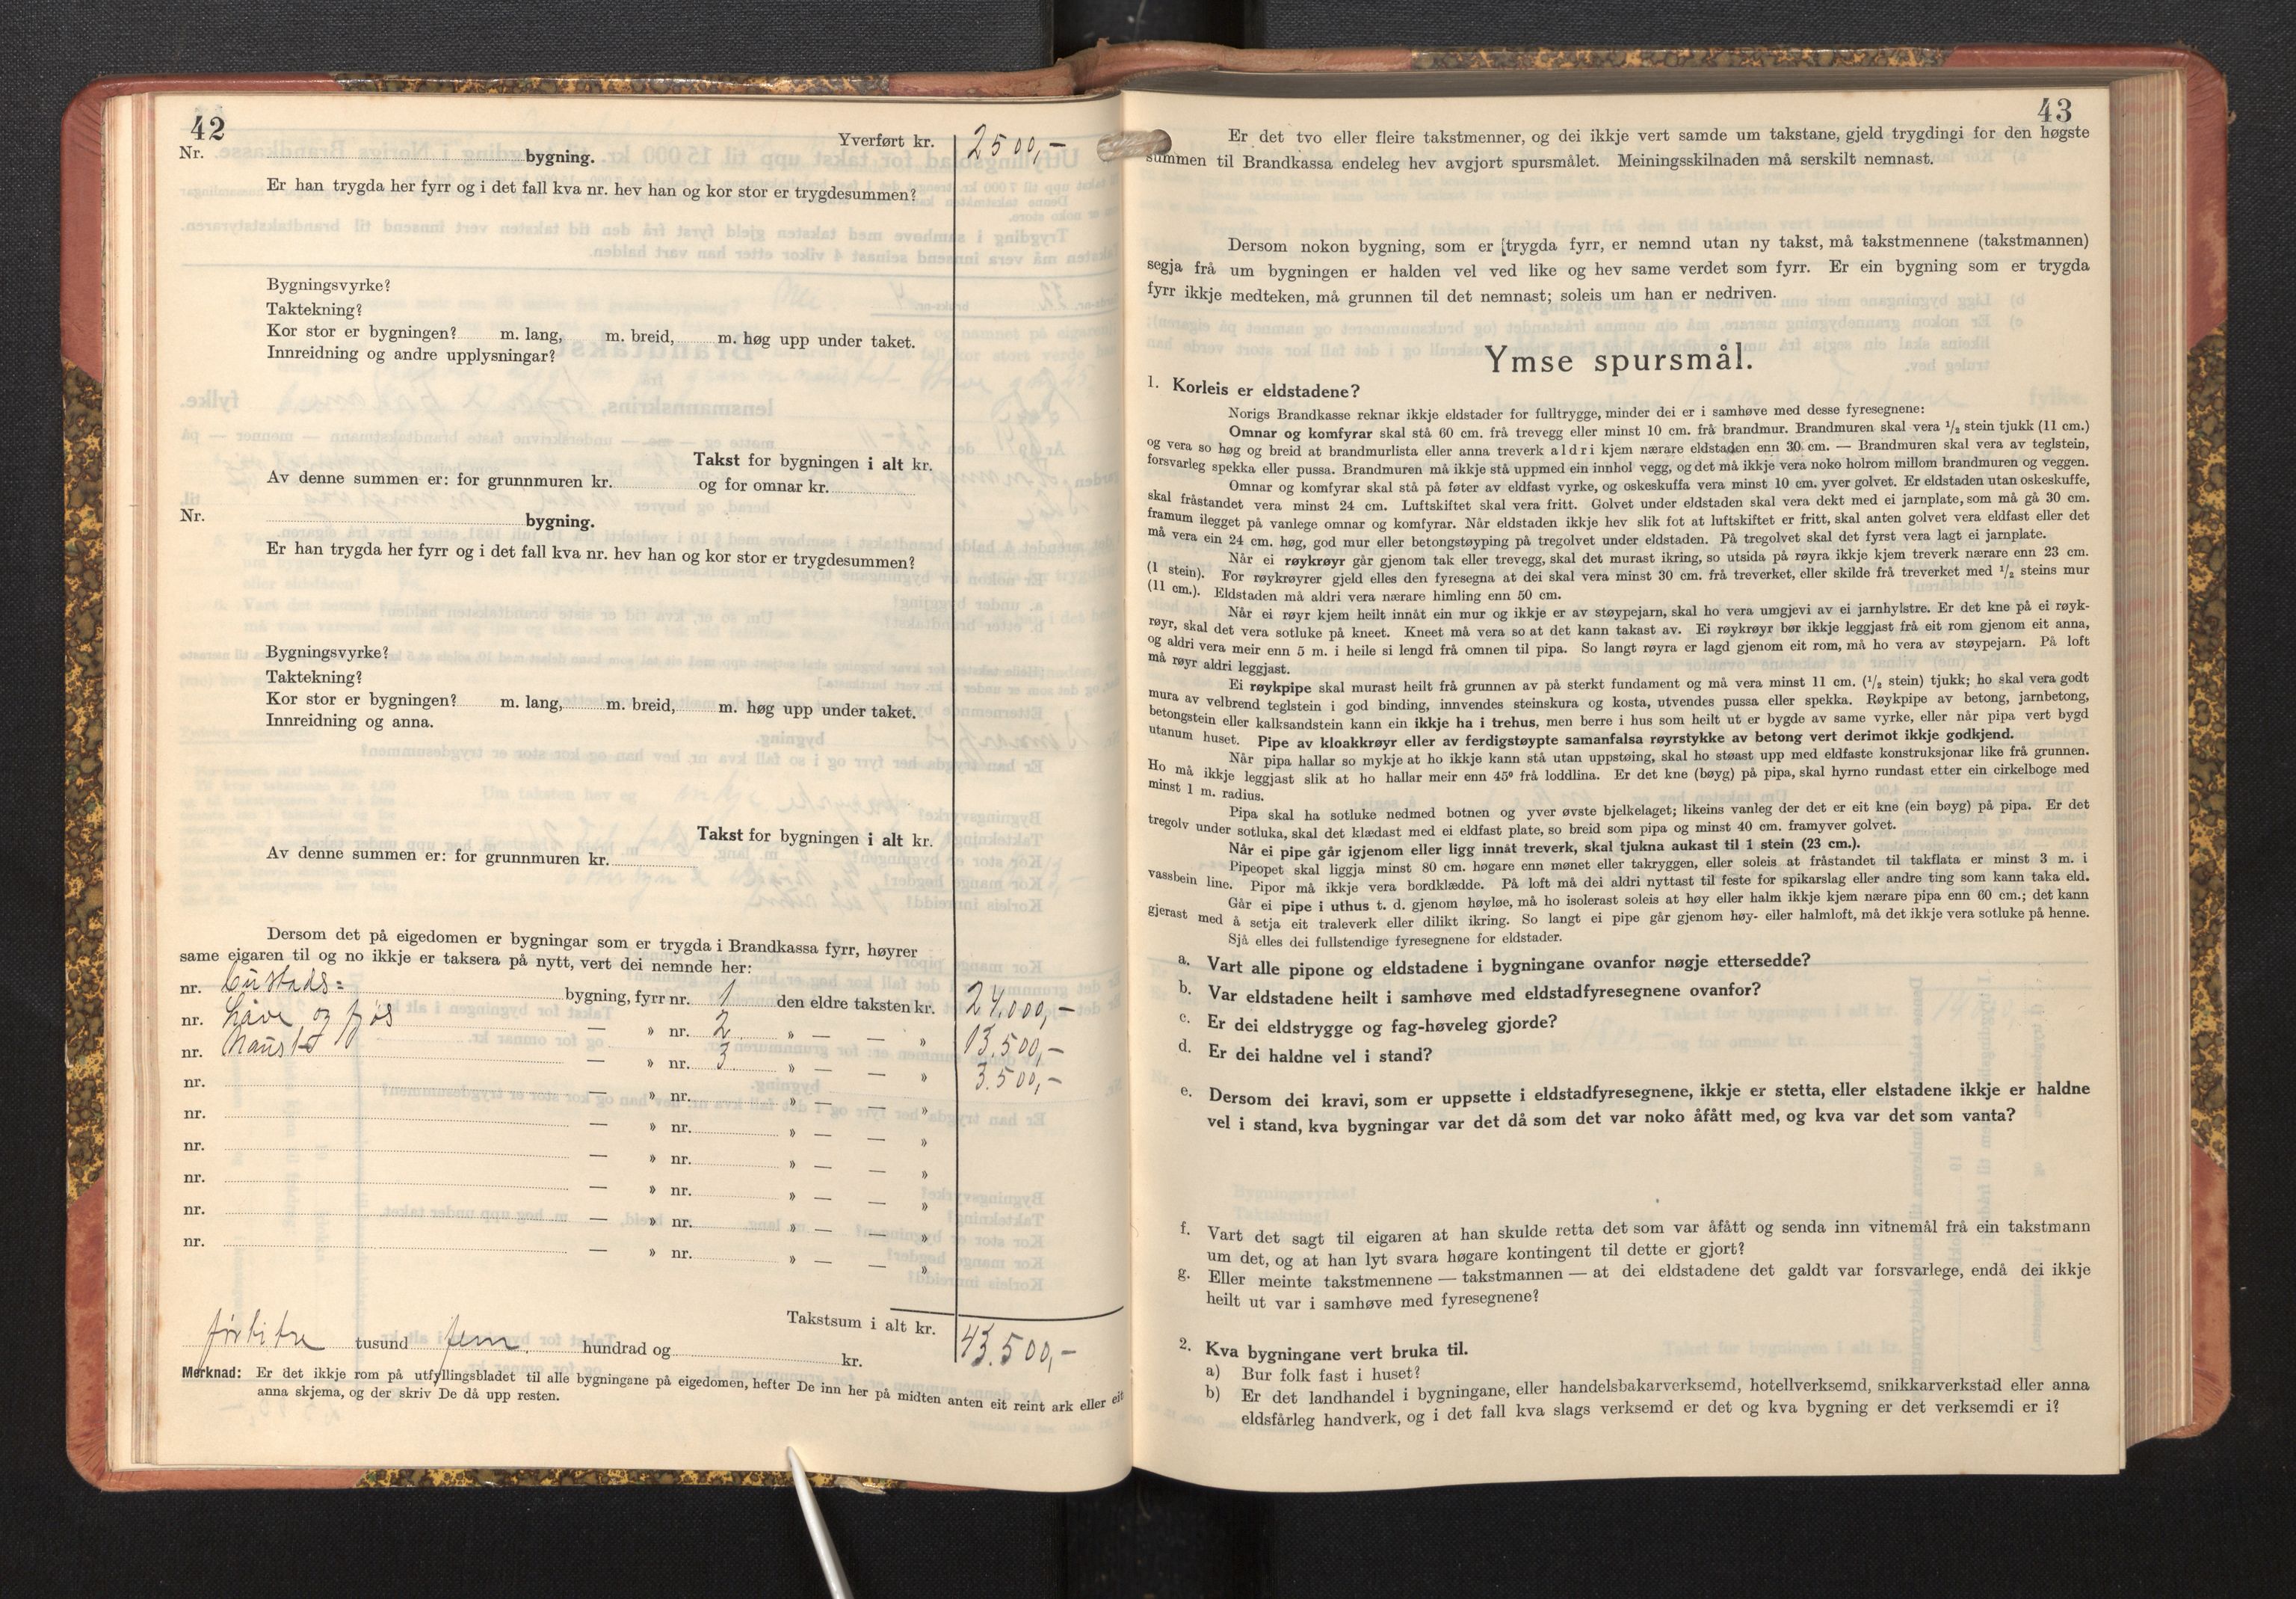 42
Yverført kr. 2500,-
Nr. bygning.
Er han trygda her fyrr og i det fall kva nr. hev han og kor stor er trygdesummen?
Bygningsvyrke?
Taktekning?
Kor stor er bygningen? m. lang, m. breid, m. høg upp under taket.
Innreidning og andre upplysningar?
Takst for bygningen i alt kr.
Av denne summen er: for grunnmuren kr. og for omnar kr.
Nr. bygning.
Er han trygda her fyrr og i det fall kva nr. hev han og kor stor er trygdesummen?
Bygningsvyrke?
Taktekning?
Kor stor er bygningen? m. lang, m. breid, m. høg upp under taket.
Innreidning og anna.
Takst for bygningen i alt kr.
Av denne summen er: for grunnmuren kr.
Dersom det på eigedomen er bygningar som er trygda i Brandkassa fyrr, høyrer
same eigaren til og no ikkje er taksera på nytt, vert dei nemnde her:
nr. bustads= bygning, fyrr nr. 1 den eldre taksten kr. 24.000,-
nr. Låve og fjøs — » nr. 2 » — — » 13.500,-
nr. Naust — » nr. 3 » — — » 3.500,-
nr. — » nr. » — — »
nr. — » nr. » — — »
nr. — » nr. » — — »
nr. — » nr. » — — »
nr. — » nr. » — — »
nr. — » nr. » — — »
Takstsum i alt kr. 43.500,-
førtitre tusund fem hundrad og kr.
Merknad: Er det ikkje rom på utfyllingsbladet til alle bygningane på eigedomen, hefter De inn her på midten anten eit reint ark eller eit
anna skjema, og der skriv De då upp resten.
43
Er det tvo eller fleire takstmenner, og dei ikkje vert samde um takstane, gjeld trygdingi for den høgste
summen til Brandkassa endeleg hev avgjort spursmålet. Meiningsskilnaden må serskilt nemnast.
Dersom nokon bygning, som er trygda fyrr, er nemnd utan ny takst, må takstmennene (takstmannen)
segja frå um bygningen er halden vel ved like og hev same verdet som fyrr. Er ein bygning som er trygda
fyrr ikkje medteken, må grunnen til det nemnast; soleis um han er nedriven.
Ymse spursmål.
1. Korleis er eldstadene?
Norigs Brandkasse reknar ikkje eldstader for fulltrygge, minder dei er i samhøve med desse fyresegnene:
Omnar og komfyrar skal stå 60 cm. frå trevegg eller minst 10 cm. frå brandmur. Brandmuren skal vera 1/2 stein tjukk (11 cm.)
og vera so høg og breid at brandmurlista eller anna treverk aldri kjem nærare eldstaden enn 30 cm. — Brandmuren skal vera av teglstein,
forsvarleg spekka eller pussa. Brandmuren må ikkje stå uppmed ein innhol vegg, og det må ikkje vera noko holrom millom brandmuren og veggen.
Omnar og komfyrar skal stå på føter av eldfast vyrke, og oskeskuffa vera minst 10 cm. yver golvet. Er eldstaden utan oskeskuffe,
skal fråstandet vera minst 24 cm. Luftskiftet skal vera fritt. Golvet under eldstaden skal vera dekt med ei jarnplate, som må gå 30 cm.
framum ilegget på vanlege omnar og komfyrar. Når eldstaden ikkje hev slik fot at luftskiftet er fritt, skal anten golvet vera eldfast eller det
må vera ein 24 cm. høg, god mur eller betongstøyping på tregolvet under eldstaden. På tregolvet skal det fyrst vera lagt ei jarnplate.
Når ei røykrøyr går gjenom tak eller trevegg, skal det murast ikring, so utsida på røyra ikkje kjem treverk nærare enn 23 cm.
(1 stein). For røykrøyrer gjeld elles den fyresegna at dei skal vera minst 30 cm. frå treverket, eller skilde frå treverket med 1/2 steins mur
(11 cm.). Eldstaden må aldri vera nærare himling enn 50 cm.
Når ei røyr kjem heilt innåt ein mur og ikkje er av støypejarn, skal ho vera umgjevi av ei jarnhylstre. Er det kne på ei røyk-
røyr, skal det vera sotluke på kneet. Kneet må vera so at det kann takast av. Ei røykrøyr bør ikkje leggjast frå eit rom gjenom eit anna,
og aldri vera meir enn 5 m. i heile si lengd frå omnen til pipa. So langt røyra er lagd gjenom eit rom, må ho vera av støypejarn. På loft
må røyr aldri leggjast.
Ei røykpipe skal murast heilt frå grunnen av på sterkt fundament og må vera minst 11 cm. (1/2 stein) tjukk; ho skal vera godt
mura av velbrend teglstein i god binding, innvendes steinskura og kosta, utvendes pussa eller spekka. Røykpipe av betong, jarnbetong,
betongstein eller kalksandstein kann ein ikkje ha i trehus, men berre i hus som heilt ut er bygde av same vyrke, eller når pipa vert bygd
utanum huset. Pipe av kloakkrøyr eller av ferdigstøypte samanfalsa røyrstykke av betong vert derimot ikkje godkjend.
Når pipa hallar so mykje at ho ikkje kann stå utan uppstøing, skal ho støast upp med eldfaste konstruksjonar like frå grunnen.
Ho må ikkje leggjast slik at ho hallar meir enn 45° frå loddlina. Er det kne (bøyg) på pipa, skal hyrno rundast etter ein cirkelboge med
minst 1 m. radius.
Pipa skal ha sotluke nedmed botnen og yver øvste bjelkelaget; likeins vanleg der det er eit kne (ein bøyg) på pipa. Er det
tregolv under sotluka, skal det klædast med ei eldfast plate, so breid som pipa og minst 40 cm. framyver golvet.
Når ei pipe går igjenom eller ligg innåt treverk, skal tjukna aukast til 1 stein (23 cm.).
Pipeopet skal liggja minst 80 cm. høgare enn mønet eller takryggen, eller soleis at fråstandet til takflata er minst 3 m. i
vassbein line. Pipor må ikkje vera bordklædde. På loft må dei aldri nyttast til feste for spikarslag eller andre ting som kann taka eld.
Går ei pipe i uthus t. d. gjenom høyløe, må ho isolerast soleis at høy eller halm ikkje kjem nærare pipa enn 60 cm.; det kann
gjerast med å setja eit traleverk eller dilikt ikring. So langt ei pipe går gjenom høy- eller halmloft, må det ikkje vera sotluke på henne.
Sjå elles dei fullstendige fyresegnene for eldstader.
a. Vart alle pipone og eldstadene i bygningane ovanfor nøgje ettersedde?
b. Var eldstadene heilt i samhøve med eldstadfyresegnene ovanfor?
c. Er dei eldstrygge og fag-høveleg gjorde?
d. Er dei haldne vel i stand?
e. Dersom dei kravi, som er uppsette i eldstadfyresegnene, ikkje er stetta, eller elstadene ikkje er haldne
vel i stand, kva bygningar var det då som det var noko åfått med, og kva var det som vanta?
f. Vart det sagt til eigaren at han skulde retta det som var åfått og senda inn vitnemål frå ein takstmann
um det, og at han lyt svara høgare kontingent til dette er gjort?
g. Eller meinte takstmennene — takstmannen — at dei eldstadene det galdt var forsvarlege, endå dei ikkje
heilt ut var i samhøve med fyresegnene?
2. Kva bygningane vert bruka til.
a) Bur folk fast i huset?
b) Er det landhandel i bygningane, eller handelsbakarverksemd, hotellverksemd, snikkarverkstad eller anna
eldsfårleg handverk, og i det fall kva slags verksemd er det og kva bygning er det verksemdi er i?